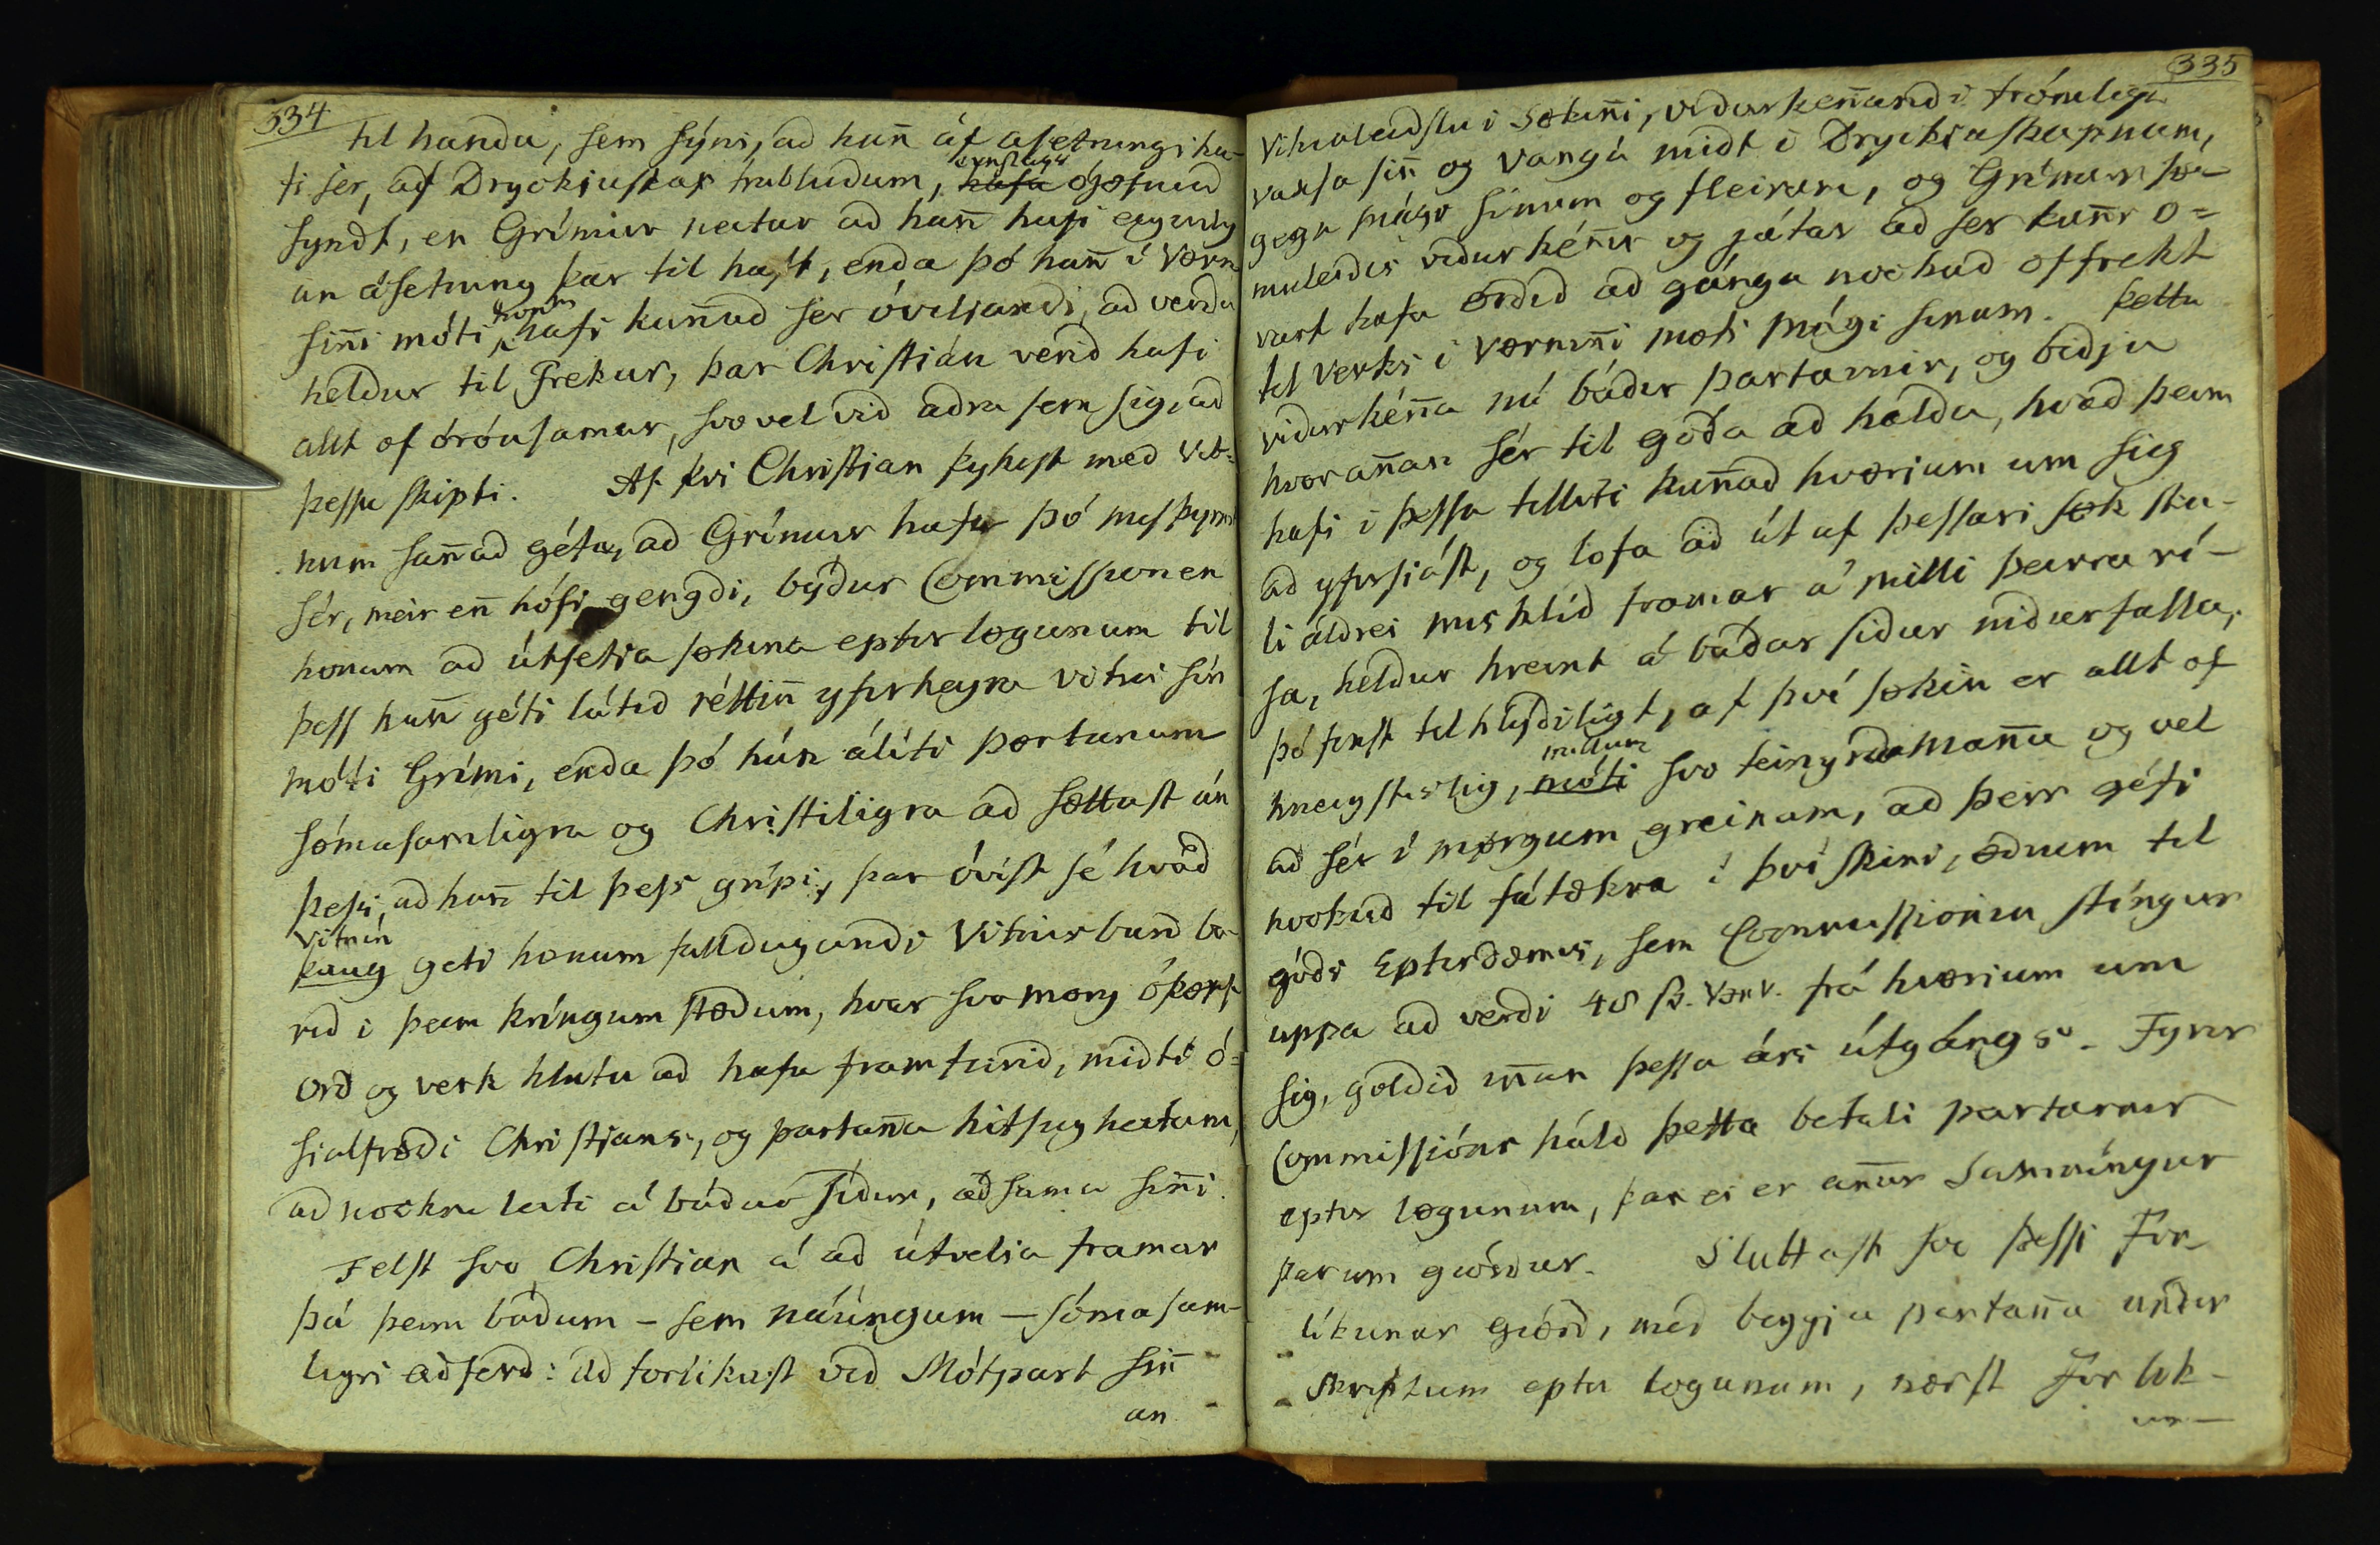 334
til handa, sem sýni, að hañ af asetningi ha-
fi sér, af Dryckjuskap trubludum, ~~hafa~~ ójøfnud
syndt, en Grímur neitar að hañ hafi eigenleg
an ásetning þar til haft, enda þó hañ í Vørn
siñi móti honum hafi kuñad ser óviljandi, að verda
heldur til Frekur, þar Christián verið hafi
allt of óróusamur, svo vel við adra sem sig, að
þessu skipti. Af þvi Christian þykist með Vit-
num sañad géta, að Grímur hafi þó misþyrmt
sér, meir eñ hófi gengdi, býdur Commissionen
honum að útsetja søkina eptir løgunum til
þess hañ géti látið réttiñ yfirheyra vitni sín
móti Grími, enda þó hún álíti pørtunum
sómasamligra og Christiligra að sættast án
þess, að hañ til þess grípi, þar óvist sé hvað
Vitnin
~~þaug~~ geti honum fulldugandi Vitnisburd bo-
rið i þeim kríngumstædum, hvar svo mørg óþørf
ord og verk hlutu að hafa framfarið, midt i ó-
sialfrædi Christjans, og partaña hitsugheitum,
að nockru leiti á bádar sídur, að sama siñi.
Felst svo Christian á að útvelia framar
þá þeim bádum - sem náúngum - sómasam-
ligri adferd: Að forlikast við Mótpart siñ
an
335
Vitnaleidslu i Søkiñi, vidurkeñandi frómliga
vansa siñ og vangá midt i Dryckiuskapnum,
gegn mági sínum og fleirum, og Grímur sø-
muleidis vidurkéñir og játar að ser kuñi o-
vart hafa ordið að gánga nockud offrekt
til Verks i Vørniñi moti Mági sinum. Þetta
vidurkéña nú bádir partarnir, og bidja
hvor añan sér til góda að halda, hvað þeim
hafi i þessu tilliti kuñad hvørium um sig
að yfirsiást, og lofa að út af þessari søk sku-
li aldrei misklíd framar á milli þeirra rí-
sa, heldur hreint á bádar sídur nidurfalla,
þó finst tilhlýdiligt, af því søkin er allt of
hneigslislig, ~~móti~~ millum svo feingra Maña og vel
að sér i mørgum greinum, að þeir géfi
nockud til fátækra i því skini, ødrum til
góds Eptirdæmis, sem Commissionin stíngur
uppa að verdi 48 ss. Vørv. frá hvørium um
sig, goldið iñan þessa árs útgángs. Fyrir
Commissións hald þetta betali partarnir
eptir løgunum, þar ei er añar Samníngur
þar um giørdur. Sluttast svo þessi For-
líkunar giørd, með beggja partaña undir
skriptum eptir løgunum, nærst Forlik-
un-